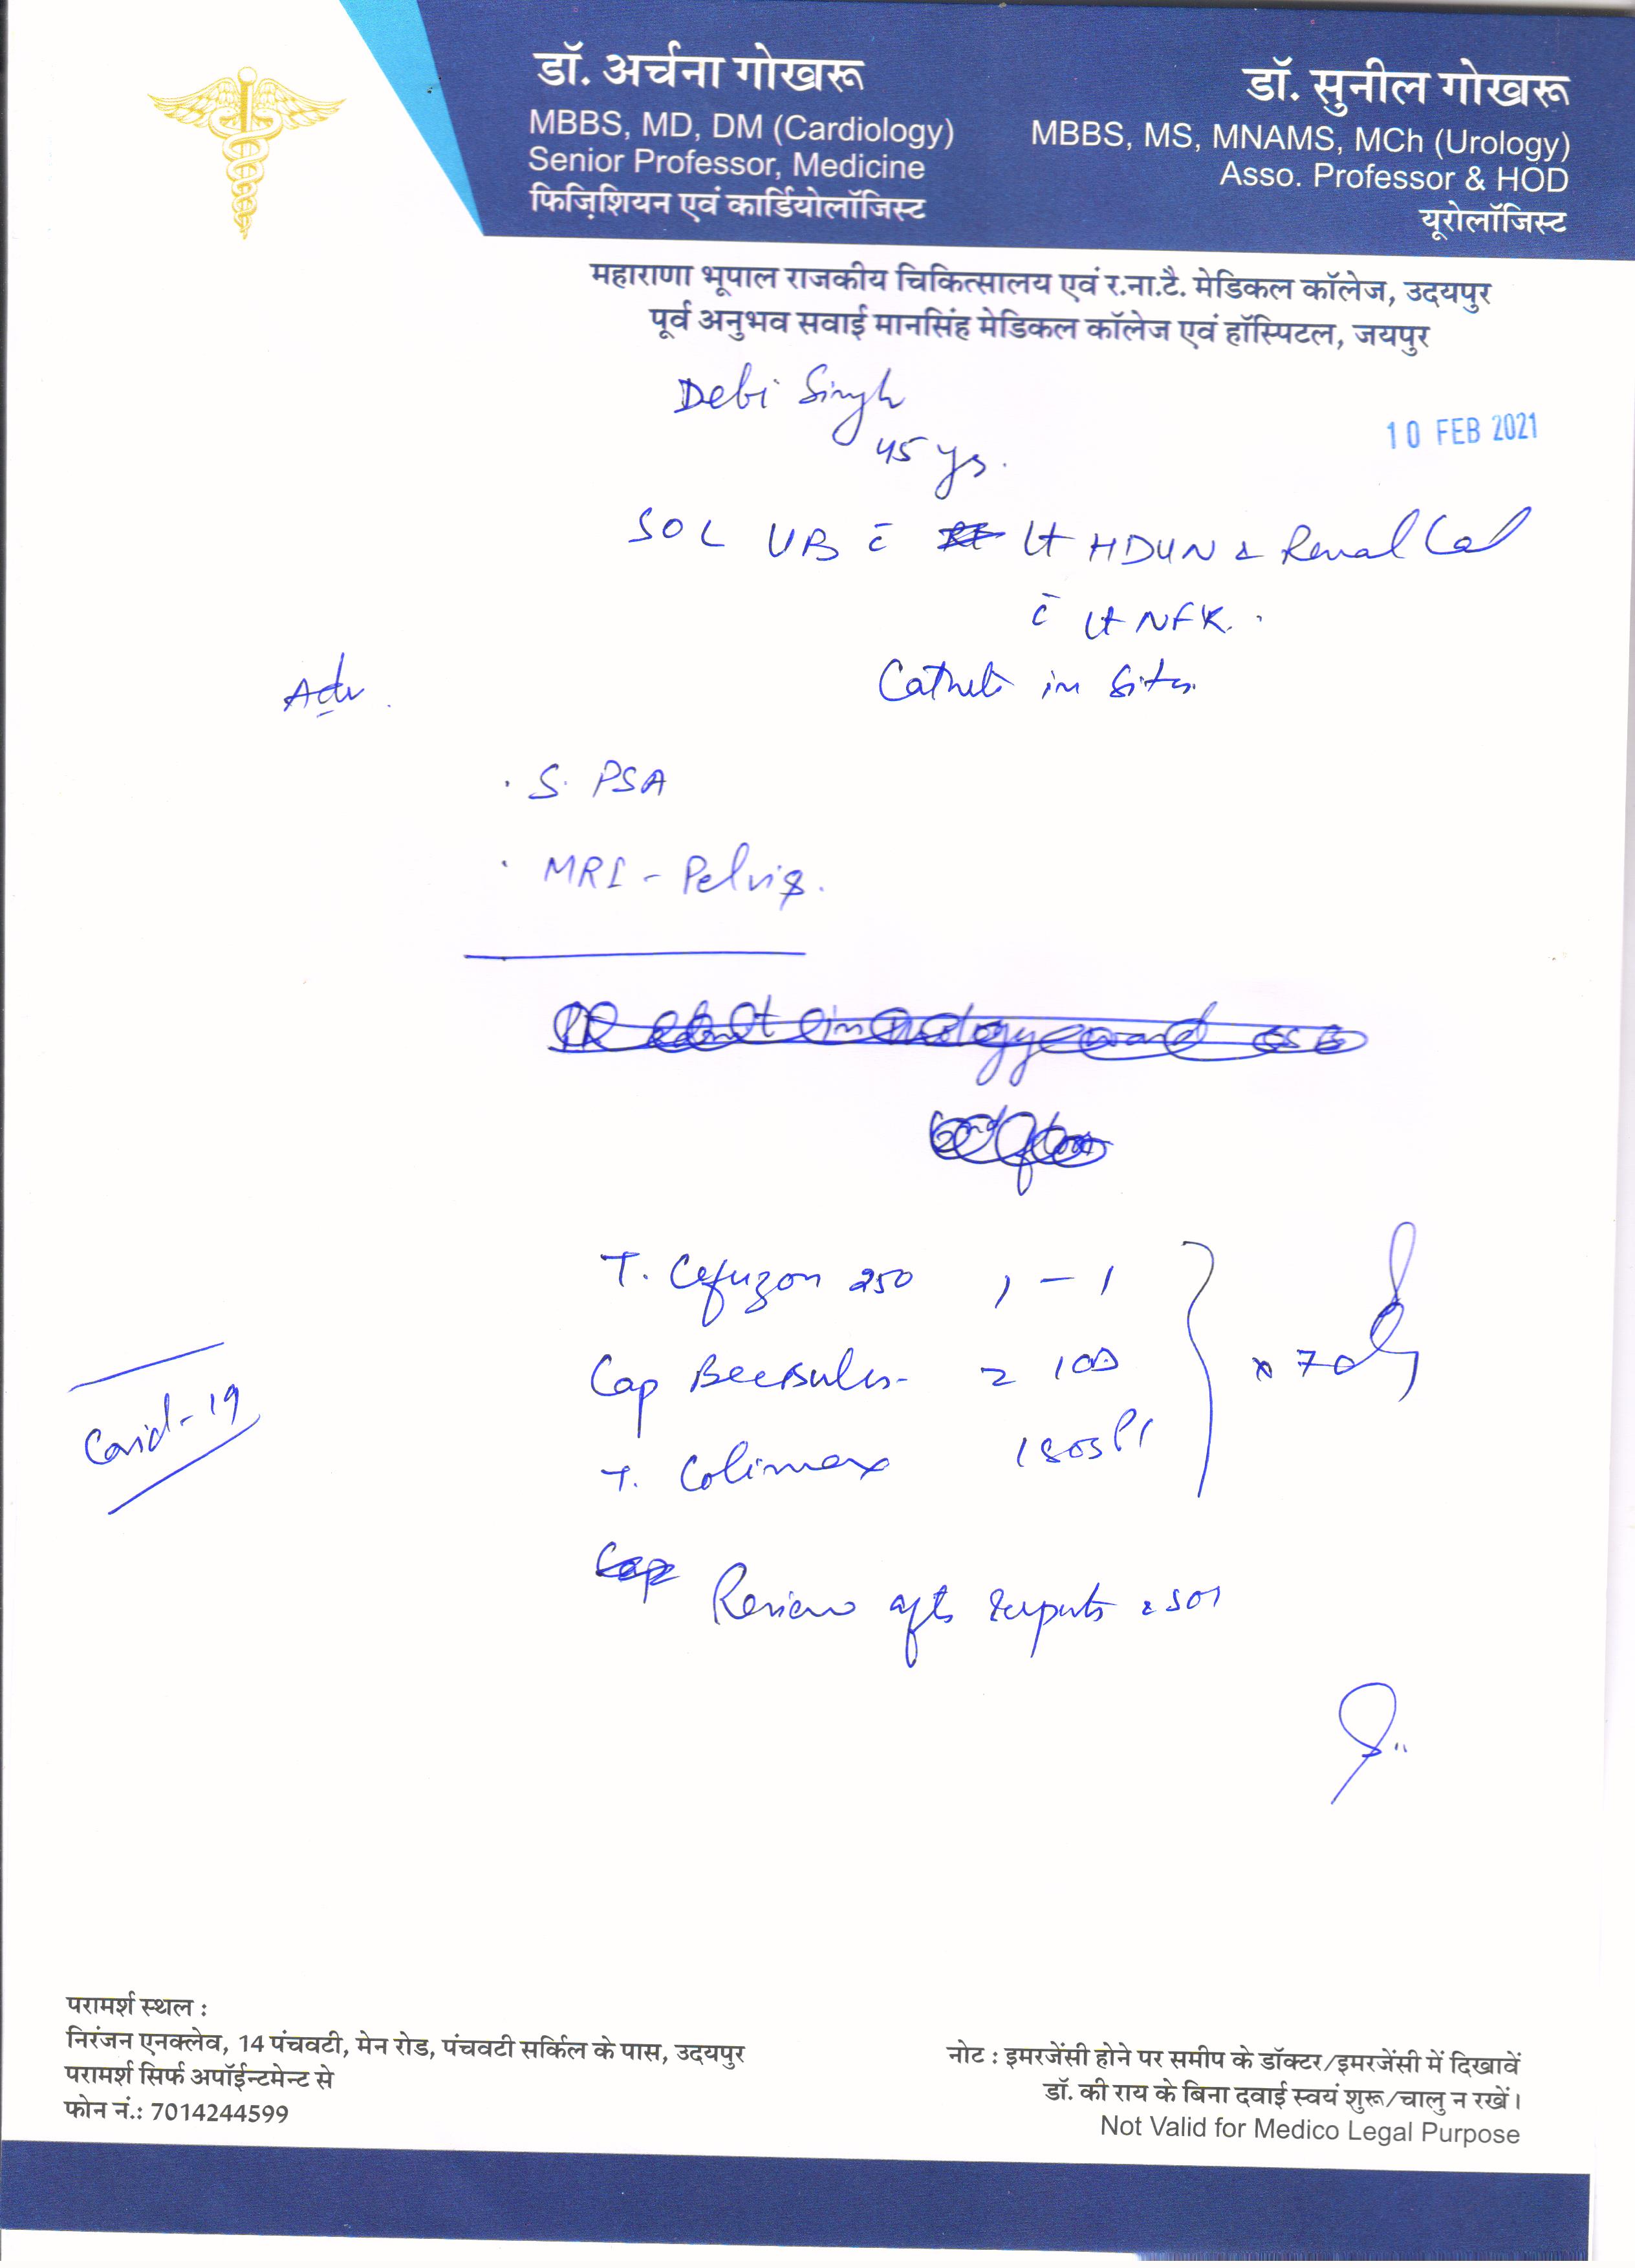 डॉ. अर्चना गोखरू
MBBS, MD, DM (Cardiology)
Senior Professor, Medicine
फिज़िशियन एवं कार्डियोलॉजिस्ट
डॉ. सुनील गोखरू
MBBS, MS, MNAMS, MCh (Urology)
Asso. Professor & HOD
यूरोलॉजिस्ट
महाराणा भूपाल राजकीय चिकित्सालय एवं र.ना.टै. मेडिकल कॉलेज, उदयपुर
पूर्व अनुभव सवाई मानसिंह मेडिकल कॉलेज एवं हॉस्पिटल, जयपुर
Debi Singh
10 FEB 2021
45 ys.
SOL UB c̄ Lt HDUN & Renal Cal
c̄ Lt NFK.
Adv.
in Situ.
· S. PSA
· MRI - Pelvis.
T. Cefuzon 250 1 - 1
Cap 100
x 7
T. Colimex 1 SOS
Covid-19
Review SOS
परामर्श स्थल :
निरंजन एनक्लेव, 14 पंचवटी, मेन रोड, पंचवटी सर्किल के पास, उदयपुर
परामर्श सिर्फ अपॉईन्टमेन्ट से
फोन नं.: 7014244599
नोट : इमरजेंसी होने पर समीप के डॉक्टर/इमरजेंसी में दिखावें
डॉ. की राय के बिना दवाई स्वयं शुरू/चालु न रखें।
Not Valid for Medico Legal Purpose